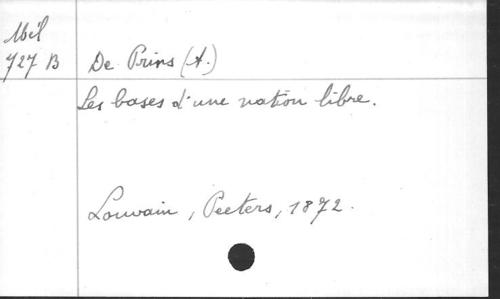 Mél
727 B
De Prins (A.)
Les bases d'une nation libre.
Louvain, Peeters, 1872.